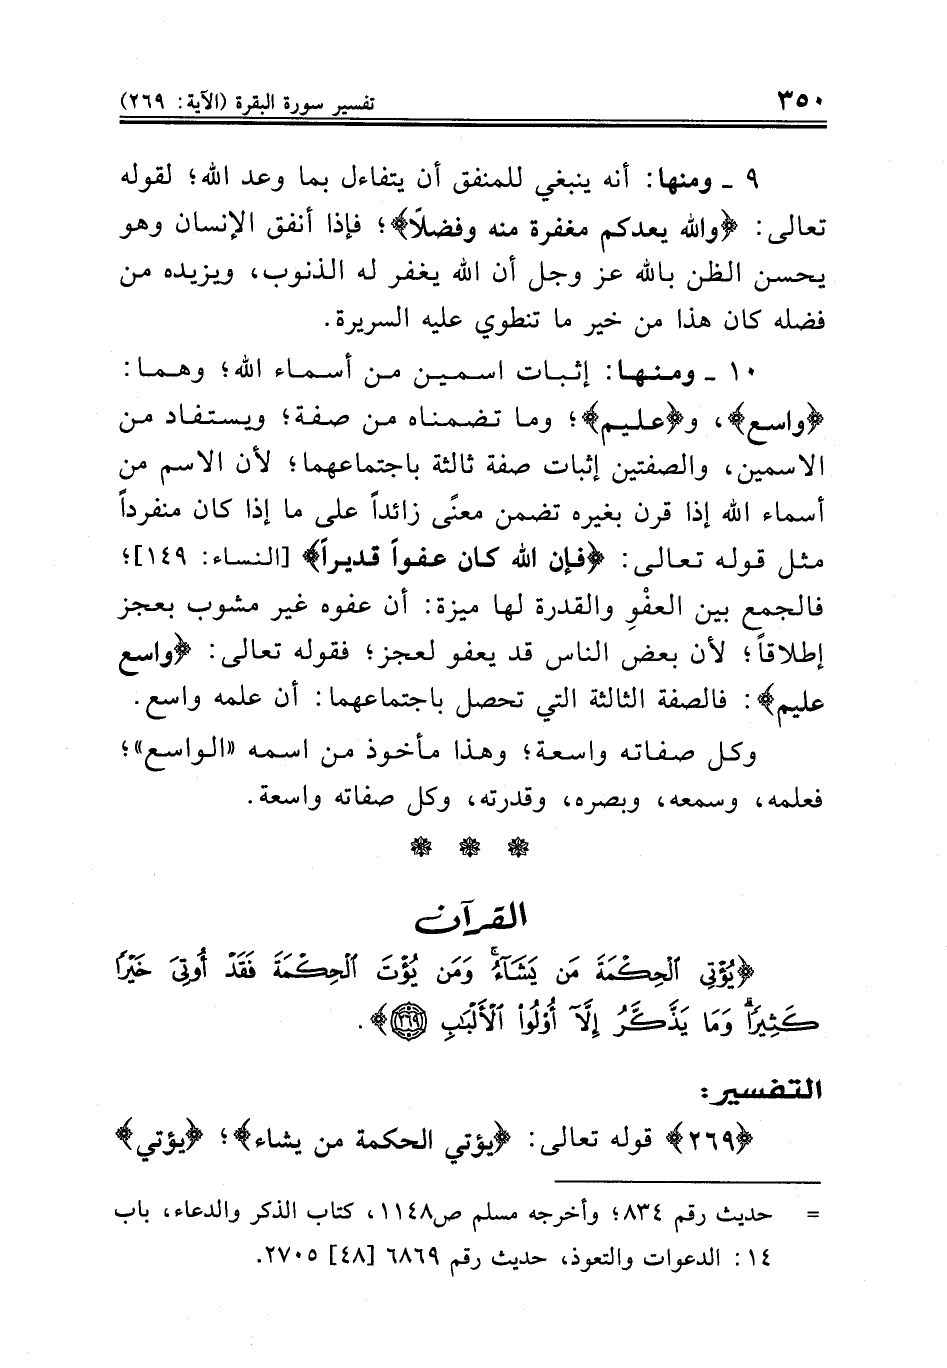 ٣٥٠ تفسير سورة البقرة (الآية: ٢٦٩)
٩ ـ ومنها: أنه ينبغي للمنفق أن يتفاءل بما وعد الله؛ لقوله
تعالى: ﴿والله يعدكم مغفرة منه وفضلاً﴾؛ فإذا أنفق الإنسان وهو
يحسن الظن بالله عز وجل أن الله يغفر له الذنوب، ويزيده من
فضله كان هذا من خير ما تنطوي عليه السريرة.
١٠ ـ ومنها: إثبات اسمين من أسماء الله؛ وهما:
﴿واسع﴾، و﴿عليم﴾؛ وما تضمناه من صفة؛ ويستفاد من
الاسمين، والصفتين إثبات صفة ثالثة باجتماعهما؛ لأن الاسم من
أسماء الله إذا قرن بغيره تضمن معنًى زائداً على ما إذا كان منفرداً
مثل قوله تعالى: ﴿فإن الله كان عفواً قديراً﴾ [النساء: ١٤٩]؛
فالجمع بين العفْوِ والقدرة لها ميزة: أن عفوه غير مشوب بعجز
إطلاقاً؛ لأن بعض الناس قد يعفو لعجز؛ فقوله تعالى: ﴿واسع
عليم﴾: فالصفة الثالثة التي تحصل باجتماعهما: أن علمه واسع.
وكل صفاته واسعة؛ وهذا مأخوذ من اسمه «الواسع»؛
فعلمه، وسمعه، وبصره، وقدرته، وكل صفاته واسعة.
القرآن
﴿يُؤْتِي ٱلْحِكْمَةَ مَن يَشَآءُۚ وَمَن يُؤْتَ ٱلْحِكْمَةَ فَقَدْ أُوتِيَ خَيْرًا
كَثِيرًاۗ وَمَا يَذَّكَّرُ إِلَّآ أُوْلُواْ ٱلْأَلْبَٰبِ ٢٦٩﴾.
التفسير:
﴿٢٦٩﴾ قوله تعالى: ﴿يؤتي الحكمة من يشاء﴾؛ ﴿يؤتي﴾
= حديث رقم ٨٣٤؛ وأخرجه مسلم ص١١٤٨، كتاب الذكر والدعاء، باب
١٤: الدعوات والتعوذ، حديث رقم ٦٨٦٩ [٤٨] ٢٧٠٥.